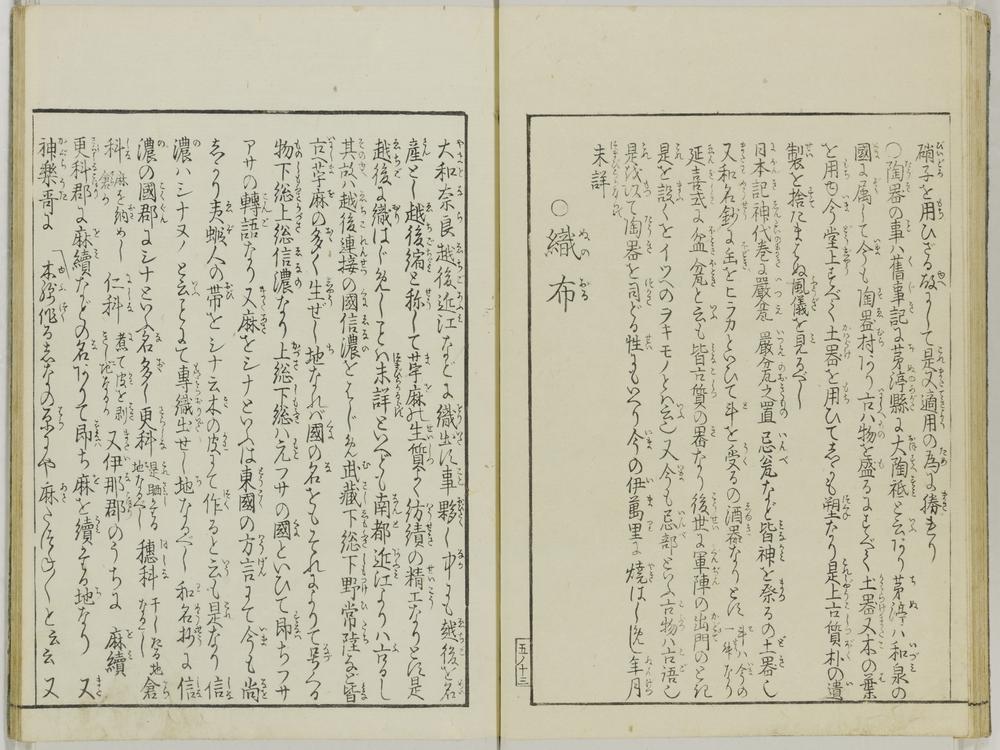 硝子を用ひざる故にして是又適用の為に捲まり
○陶器の事ハ舊事記に茅渟縣に大陶祗と云あり茅渟ハ和泉の
國に属して今も陶器村あり古ハ物を盛るにすべて土器又木の葉
を用ゆ今堂上すべて土器を用ひてしかも塑なり是上古質朴の遺
製を捨たまハぬ風儀を見るべし
日本記神代巻に嚴瓮 嚴瓮之置 忌瓮など皆神を祭るの土器也
又和名鈔に缶をヒラカといひて斗を受るの酒器なりとぞ 斗ハ今の一升なり
延喜式に盆瓮と云も皆古質の器なり後世に軍陣の出門のとき
是を設くをイツヘのヲキモノとハ云也又今も忌部といふ古物ハ古語也
是に次て陶器を同じる性にもいへり今の伊萬里に燒はじめし年月
未詳
○織布
五ノ十三
大和奈良越後近江などに織出す事夥し中にも越後を名
産とし越後縮と称して苧麻の生質よく紡績の精工なりとぞ是
越後に織はじめしことハ未詳といへども南都近江よりハ古るし
其故ハ越後連接の國信濃をはじめ武蔵下総下野常陸など皆
古へ苧麻の多く生ぜし地なれバ國の名をもそれによりて号くる
物下総上総信濃なり上総下総ハ元フサの國といひて即ちフサ
アサの轉語なり又麻をシナといふハ東國の方言にて今も尚
しかり夷蝦人の帯をシナ云木の皮にて作ると云も是なり信
濃ハシナヌノと云とにて專織出せし地なるべし和名抄に信
濃の國郡にシナといふ名多し更科 是晒せる地なるべし 穂科 干したる地なるべし 倉
科 麻を納めし倉か 仁科 煮て皮を剥きし地なるか 又伊那郡のうちに麻續
更科郡に麻續などの名ありて即ち麻を續たる地なり又
神樂哥に 木綿作るしなのゝ原にや麻たづね〱と云云又